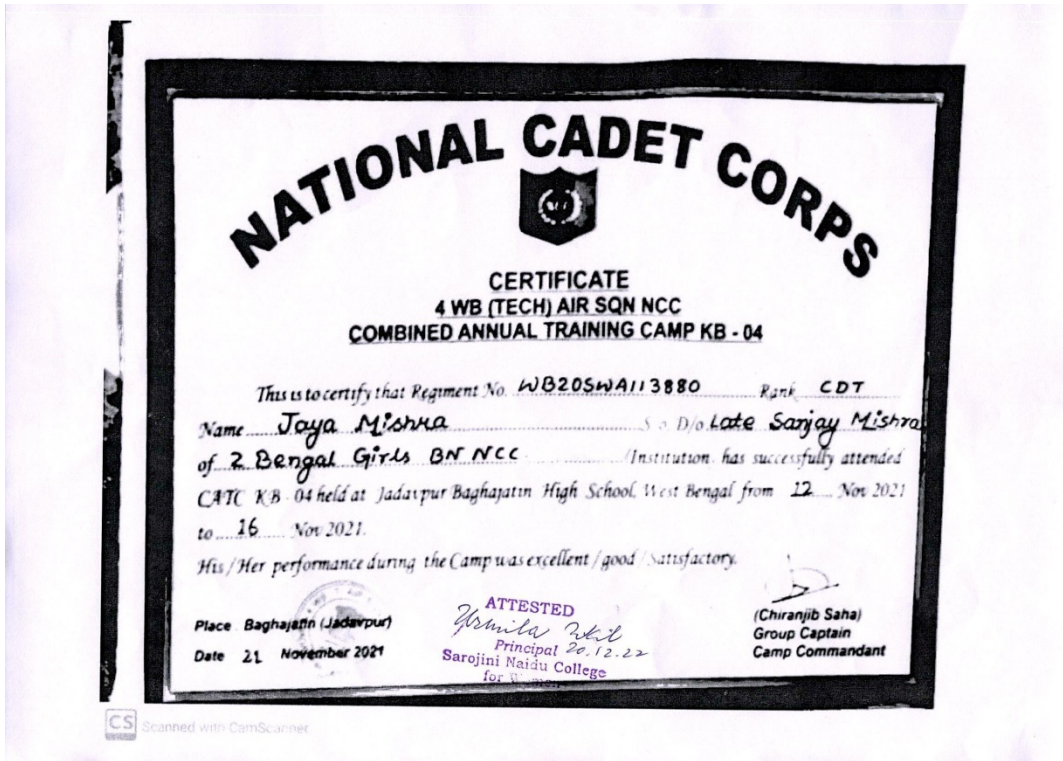 NATIONAL CADET CORPS
CERTIFICATE
4 WB (TECH) AIR SQN NCC
COMBINED ANNUAL TRAINING CAMP KB - 04
This is to certify that Regiment No. WB20SWA113880 Rank CDT
Name Jaya Mishra S/o. D/o Late Sanjay Mishra
of 2 Bengal Girls BN NCC /Institution has successfully attended
CATC KB - 04 held at Jadavpur Baghajatin High School, West Bengal from 12 Nov 2021
to 16 Nov 2021.
His / Her performance during the Camp was excellent / good / Satisfactory.
Place Baghajatin (Jadavpur)
Date 21 November 2021
ATTESTED
Urmila
Principal 20.12.22
Sarojini Naidu College
for
(Chiranjib Saha)
Group Captain
Camp Commandant
CS Scanned with CamScanner